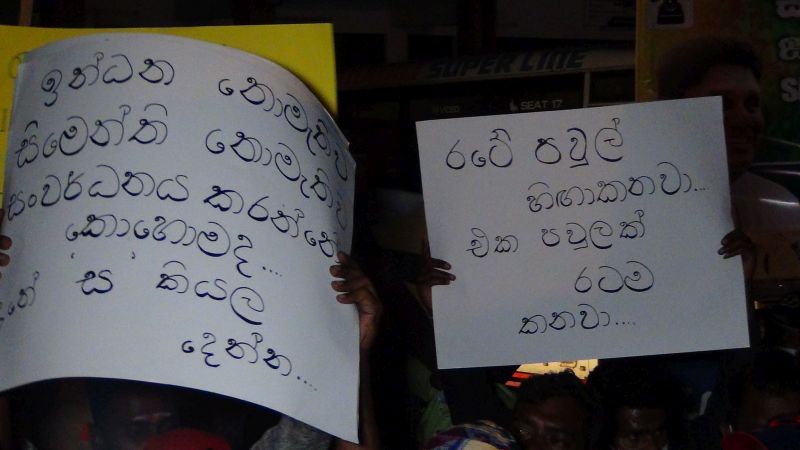 ඉන්ධන නොමැතිව
සිමෙන්ති නොමැතිව
සංවර්ධනය කරන්නේ
කොහොමද....
'ස' කියල
දෙන්න....
රටේ පවුල්
හිඟාකනවා...
එක පවුලක්
රටම
කනවා....
SUPER LINE
VIDEO
SEAT 17